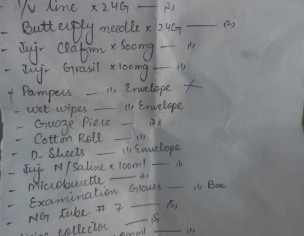 I/V line x 24G — (2)
- Butterfly needle x 24G — (2)
- Inj. Claforan x 500mg — (1)
- Inj. Grasil x 100mg — (1)
Pampers — (1) Envelope
- wet wipes — (1) Envelope
- Guaze Piece — (2)
- Cotton Roll — (1)
- D-Sheets — (1) Envelope
- Inj N/Saline x 100ml — (1)
- Microburette — (2)
- Examination Gloves — (1) Box
- NG Tube # 7 — (5)
collector — (5)